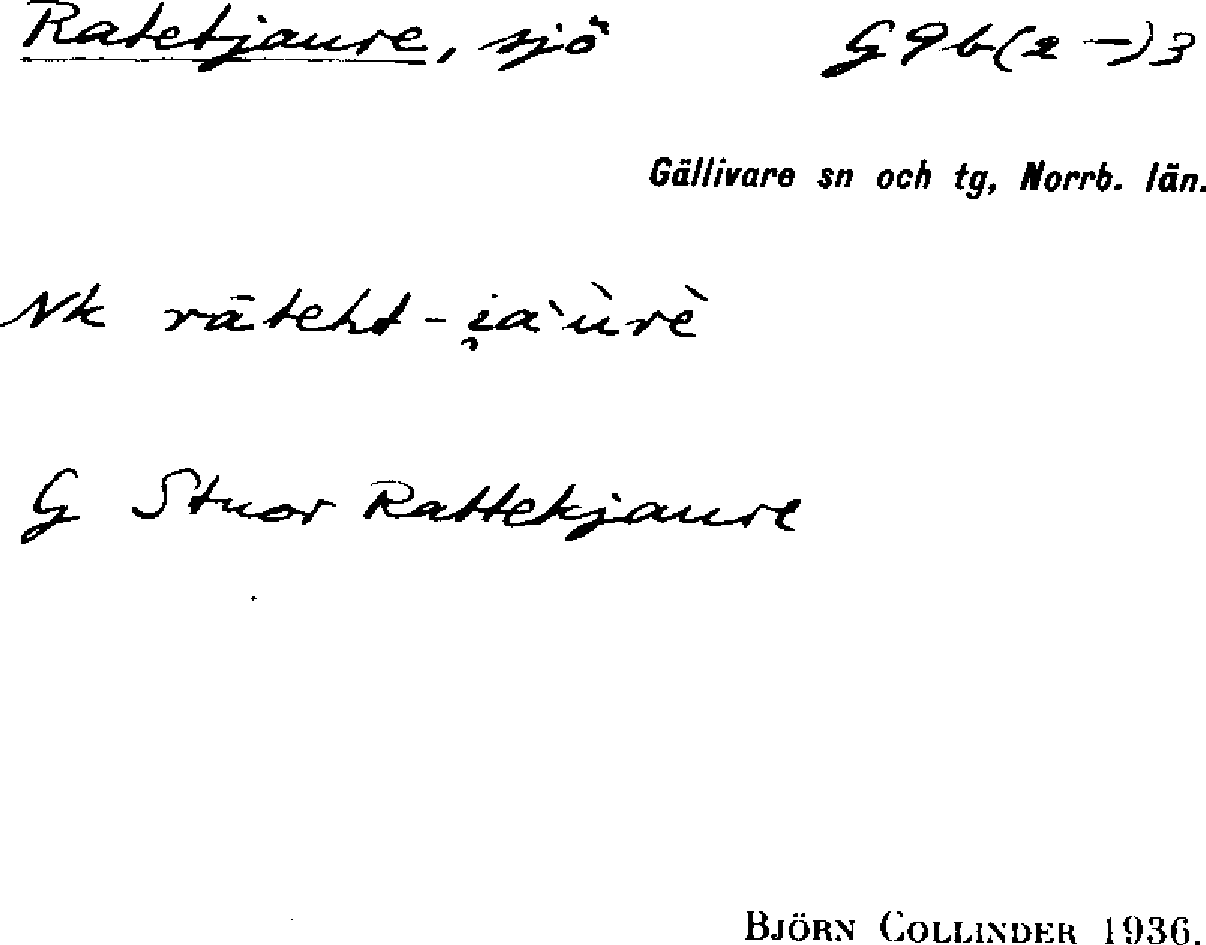 Ratetjaure, sjö G9b(2-)3
Gällivare sn och tg, Norrb. län.
Nk rāteht-i̯a`ùrè
G Stuor Rattekjaure
BJÖRN COLLINDER 1936.